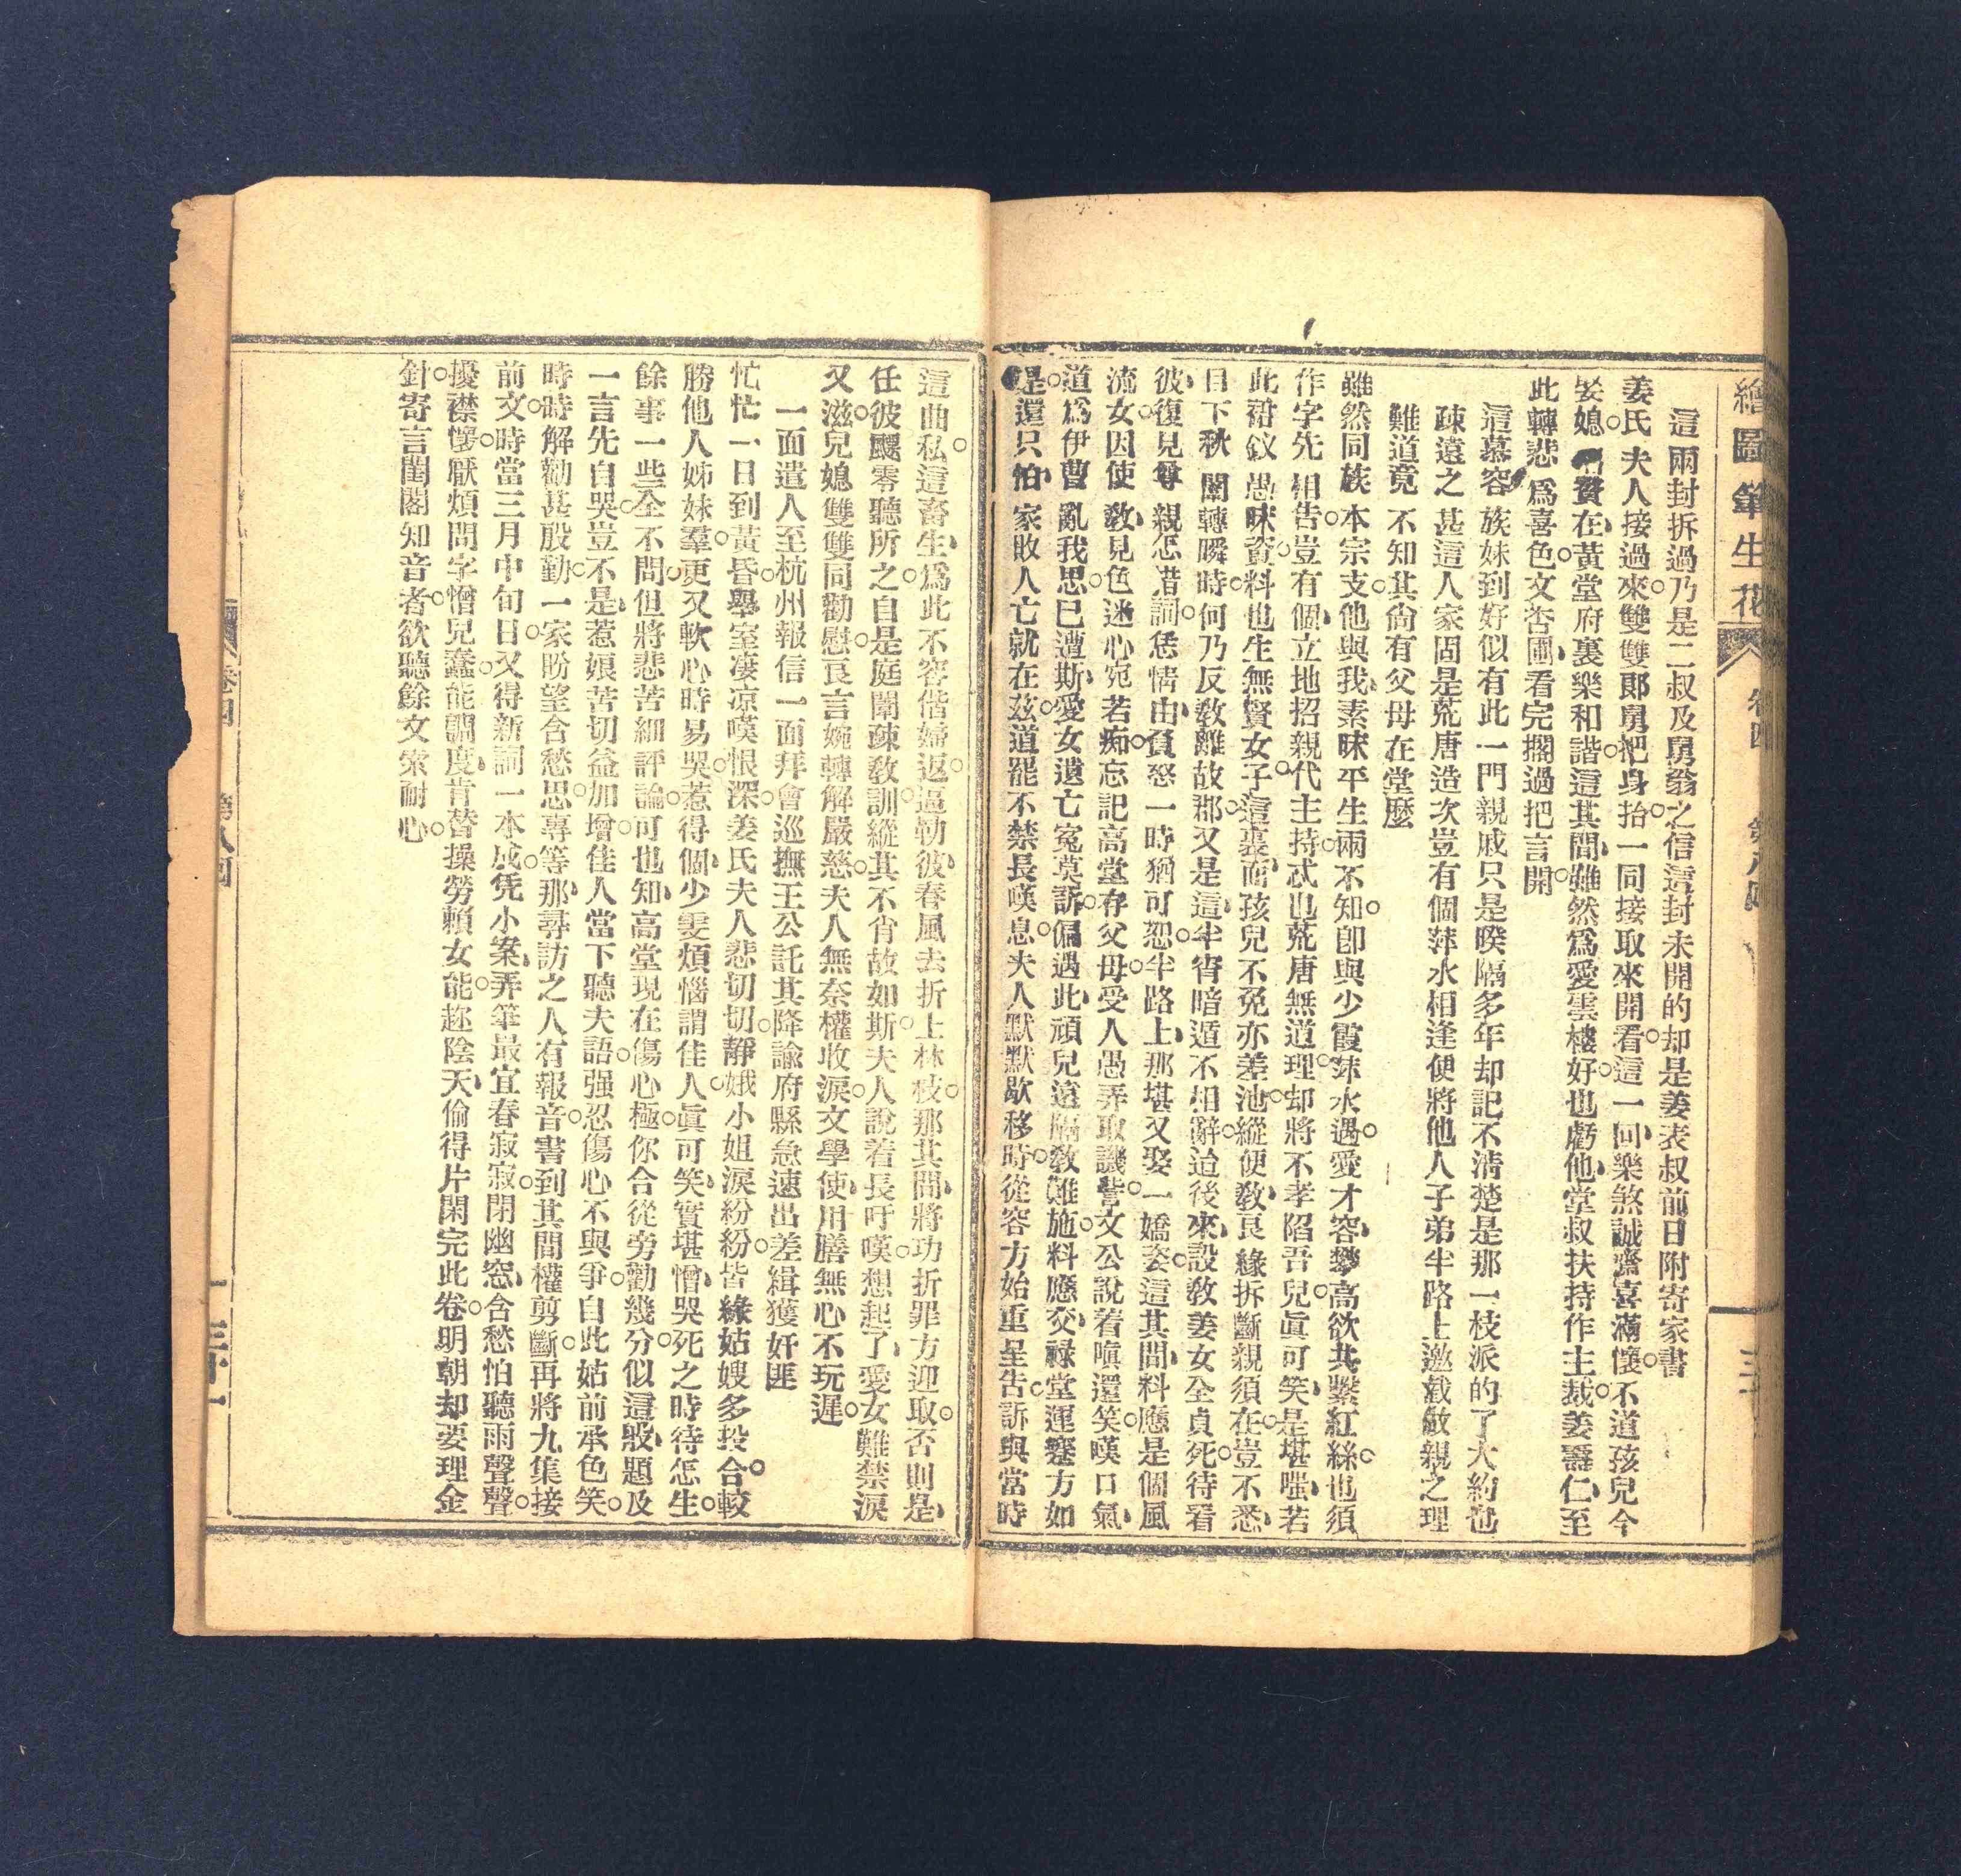 繪圖筆生花 卷四 第八回 三十
這兩封拆過乃是二叔及舅翁之信這封未開的却是姜表叔前日附寄家書
姜氏夫人接過來雙雙郎舅把身抬一同接取來開看這一回樂煞誠齋喜滿懷不道孩兒今
娶媳 贅在黃堂府裏樂和諧這其間雖然爲愛雲樓好也虧他堂叔扶持作主裁姜壽仁至
此轉悲爲喜色文杏圃看完擱過把言開
這慕容族妹到好似有此一門親戚只是暌隔多年却記不清楚是那一枝派的了大約也
疎遠之甚這人家固是荒唐造次豈有個萍水相逢便將他人子弟半路上邀截做親之理
難道竟不知其尙有父母在堂麽
雖然同族本宗支他與我素昧平生兩不知卽與少霞萍水遇愛才容攀高欲共繫紅絲也須
作字先相告豈有個立地招親代主持忒也荒唐無道理却將不孝陷吾兒眞可笑是堪嗤若
此裙釵愚昧資料也生無賢女子這裏面孩兒不免亦差池縱便教良緣拆斷親須在豈不悉
目下秋闈轉瞬時何乃反教離故郡又是這半宵暗遁不相辭迨後來設教姜女全貞死待看
彼復見尊親怎措詞恁情由負愁一時猶可恕半路上那堪又娶一嬌姿這其間料應是個風
流女因使教見色迷心宛若痴忘記高堂存父母受人愚弄取譏訾文公說着嗔還笑嘆口氣
道爲伊曹亂我思已遭斯愛女遺亡寃莫訴偏遇此頑兒遠隔教難施料應交祿堂運蹇方如
是還只怕家敗人亡就在茲道罷不禁長嘆息夫人默默歇移時從容方始重呈告訴與當時
這曲私這畜生爲此不容偕婦返逼勒彼春風去折上林枝那其間將功折罪方迎取否則是
任彼飄零聽所之自是庭闈疎教訓縱其不肖故如斯夫人說着長吁嘆想起了愛女難禁淚
又滋兒媳雙雙同勸慰哀言婉轉解嚴慈夫人無奈權收淚文學使用膳無心不玩遲
一面遣人至杭州報信一面拜會巡撫王公託其降諭府縣急速出差緝獲奸匪
忙忙一日到黃昏舉室凄凉嘆恨深姜氏夫人悲切切靜娥小姐淚紛紛皆緣姑嫂多投合較
勝他人姊妹羣更又軟心時易哭惹得個少雯煩惱謂佳人眞可笑實堪憎哭死之時待怎生
餘事一些全不問但將悲苦細評論可也知高堂現在傷心極你合從旁勸幾分似這般題及
一言先自哭豈不是惹娘苦切益加增佳人當下聽夫語强忍傷心不與爭自此姑前承色笑
時時解勸甚殷勤一家盼望含愁思專等那尋訪之人有報音書到其間權剪斷再將九集接
前文時當三月中旬日又得新詞一本成凭小案弄筆最宜春寂寂閉幽窓含愁怕聽雨聲聲
擾襟懷厭煩問字憎兒蠢能調度肯替操勞賴女能趂陰天偷得片閑完此卷明朝却要理金
針寄言閨閣知音者欲聽餘文索耐心
卷四 第八回 三十一